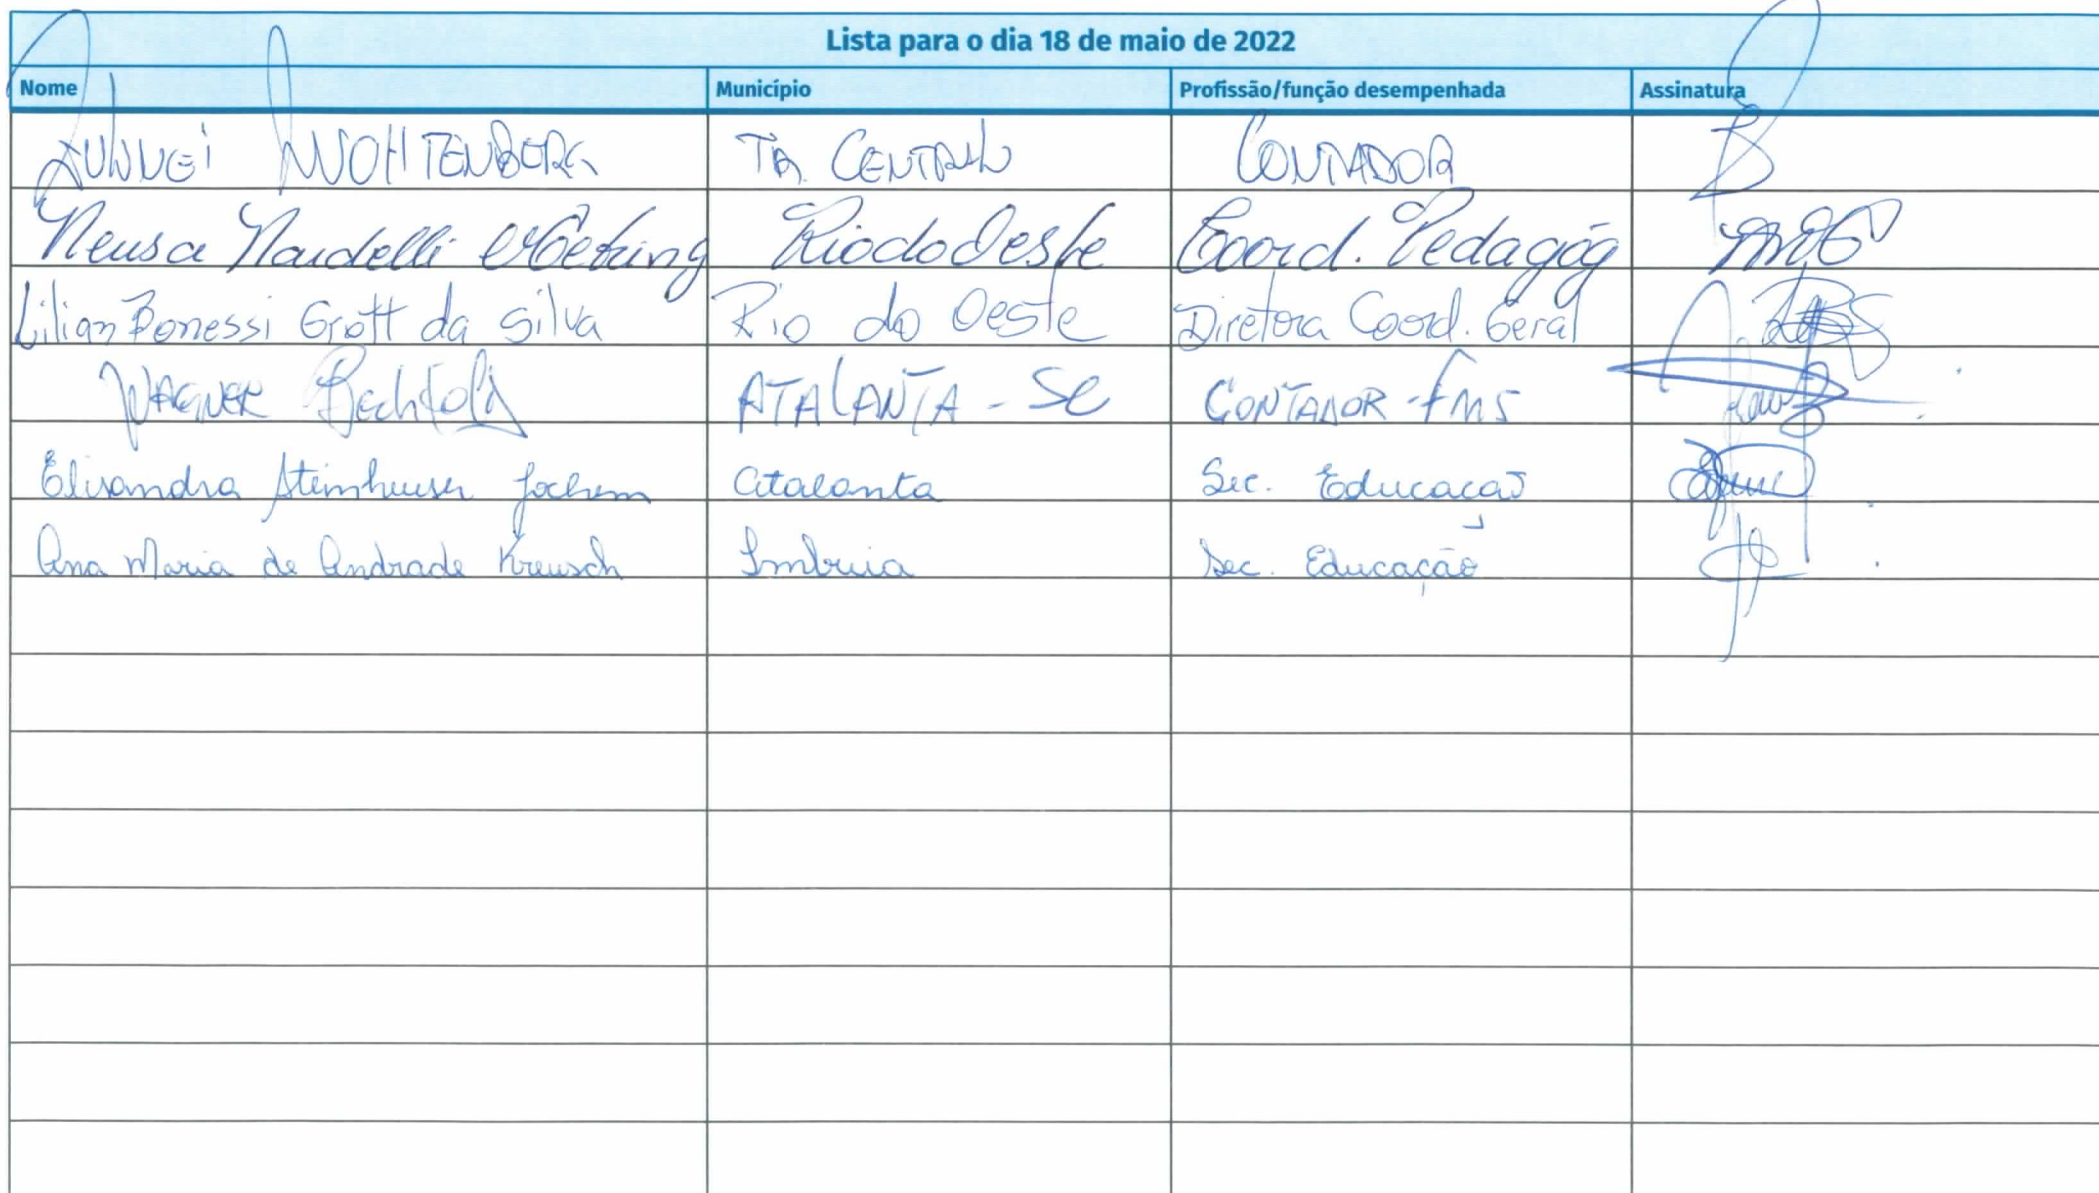 Lista para o dia 18 de maio de 2022
Nome Município Profissão/função desempenhada Assinatura
TR. CENTRAL CONTADOR
Neusa Nardelli Rio do Oeste Coord. Pedagóg
Lilian Bonessi Grott da Silva Rio do Oeste Diretora Coord. Geral
WAGNER ATALANTA - SC CONTADOR - FMS
Elisandra Jochem Atalanta Sec. Educação
Ana Maria de Andrade Kreusch Imbuia Sec. Educação